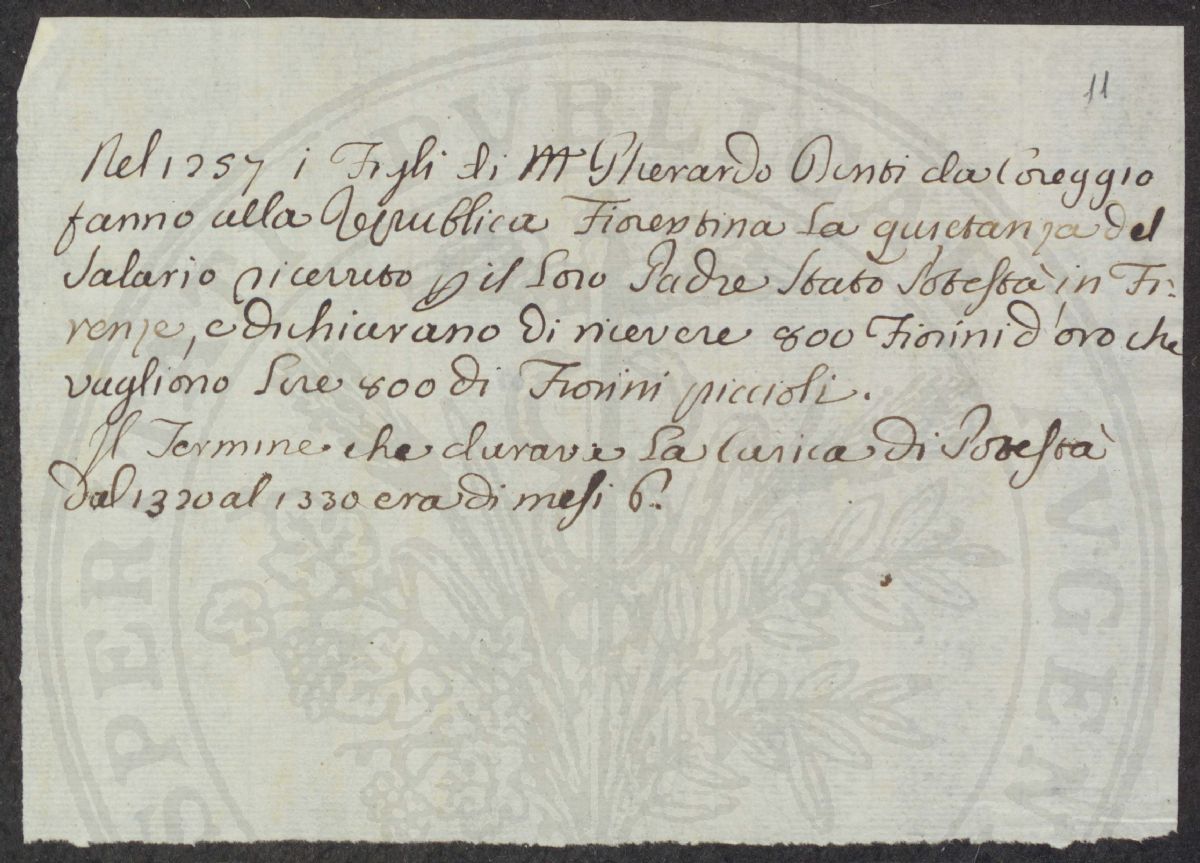 11
Nel 1257 i Figli di M Gherardo Denti da Coreggio
fanno alla Republica Fiorentina La quietanza del
Salario ricevuto p il Loro Padre Stato Potestà in Fi:
renze, e dichiarano di ricevere 800 Fiorini d'oro che
vagliono Lire 800 di Fiorini piccioli.
Il Termine che durava La Carica di Potestà
dal 1320 al 1330 era di mesi 6.